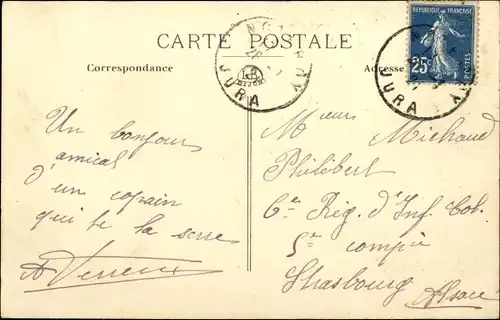 CARTE POSTALE
Correspondance
Adresse
RÉPUBLIQUE FRANÇAISE
25c
POSTES
JURA
JURA
Un bonjour
amical
d'un copain
qui te la serre
Michaud
Philibert
6e Rég. d'Inf. Col.
5e compie
Strasbourg
Alsace